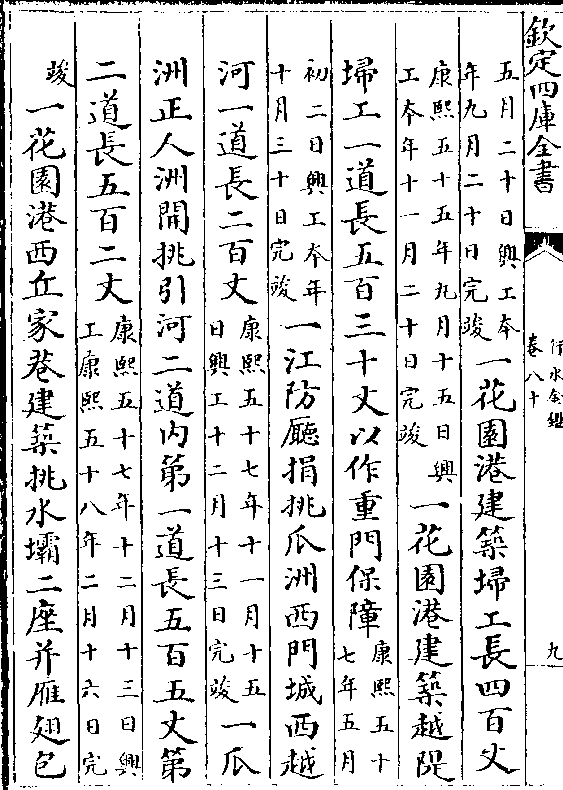 欽定四庫全書
行水金鑑
卷八十
九
五月二十日興工本
年九月二十日完竣
一花園港建築埽工長四百丈
康熙五十五年九月十五日興
工本年十一月二十日完竣
一花園港建築越隄
埽工一道長五百三十丈以作重門保障
康熙五十
七年五月
初二日興工本年
十月三十日完竣
一江防廳捐挑瓜洲西門城西越
河一道長二百丈
康熙五十七年十一月十五
日興工十二月十三日完竣
一瓜
洲正人洲開挑引河二道内第一道長五百五丈第
二道長五百二丈
康熙五十七年十二月十三日興
工康熙五十八年二月十六日完
竣
一花園港西丘家巷建築挑水壩二座并雁翅包